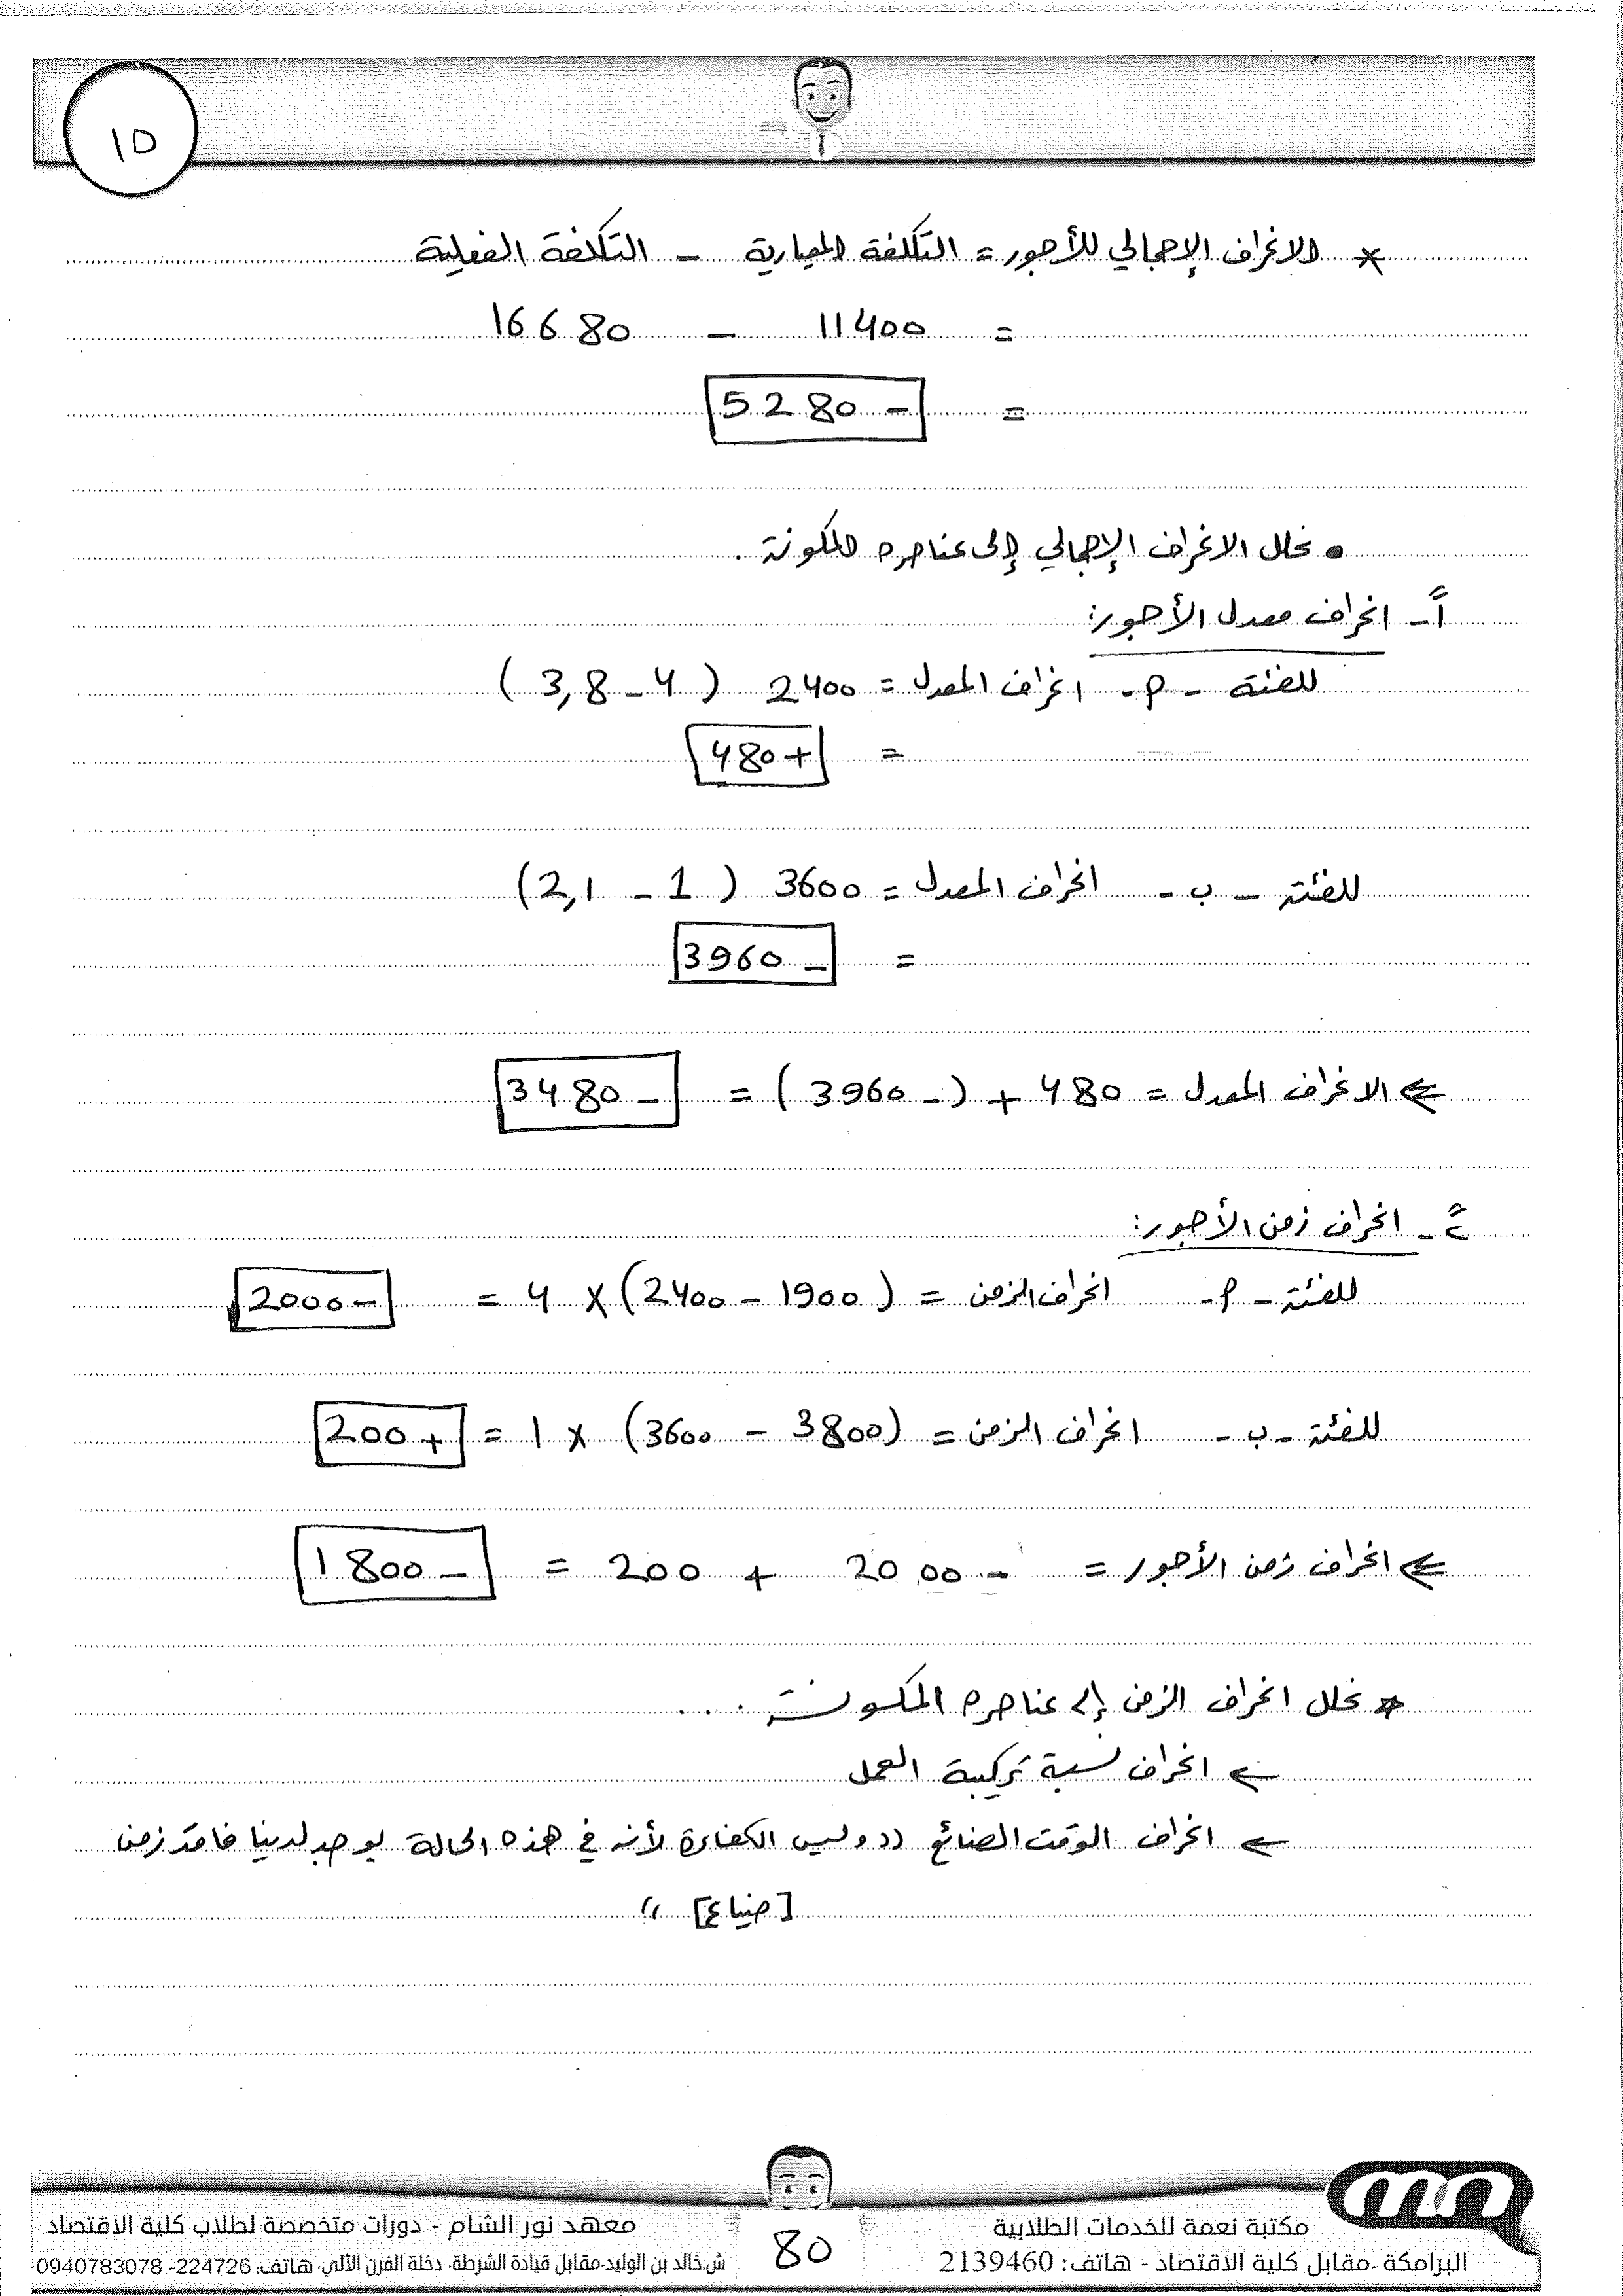 10
* الانحراف الإجمالي للأجور = التكلفة المعيارية - التكلفة الفعلية
= 11400 - 16680
= 5280 -
• نحلل الانحراف الإجمالي إلى عناصره المكونة .
أً - انحراف معدل الأجور:
للفئة - P - انحراف المعدل = 2400 ( 4 - 3,8 )
= 480 +
للفئة - ب - انحراف المعدل = 3600 ( 1 - 2,1 )
= 3960 -
⇐ الانحراف المعدل = 480 + ( - 3960 ) = 3480 -
2ً - انحراف زمن الأجور:
للفئة - P - انحراف الزمن = ( 1900 - 2400 ) × 4 = 2000 -
للفئة - ب - انحراف الزمن = ( 3800 - 3600 ) × 1 = 200 +
⇐ انحراف زمن الأجور = - 2000 + 200 = 1800 -
* نحلل انحراف الزمن إلى عناصره المكونة ...
← انحراف نسبة تركيبة العمل
← انحراف الوقت الضائع (( وليس الكفاءة لأنه في هذه الحالة يوجد لدينا فاقد زمن
[ ضياع ] ))
مكتبة نعمة للخدمات الطلابية
البرامكة - مقابل كلية الاقتصاد - هاتف: 2139460
80
معهد نور الشام - دورات متخصصة لطلاب كلية الاقتصاد
ش.خالد بن الوليد-مقابل قيادة الشرطة- دخلة الفرن الآلي- هاتف: 224726- 0940783078